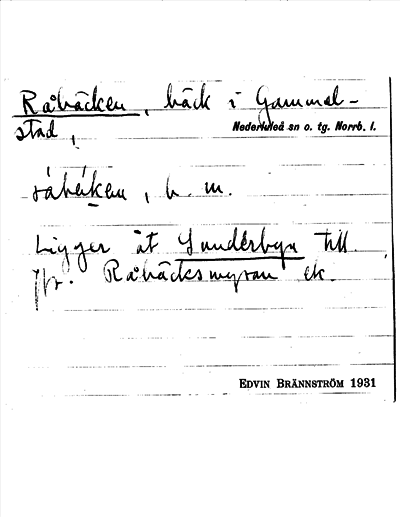 Råbäcken, bäck i Gammel-
stad,
Nederluleå sn o. tg. Norrb. l.
råbäken, b. m.
Ligger åt Sunderbyn till.
Jfr. Råbäcksmyran etc.
EDVIN BRÄNNSTRÖM 1931